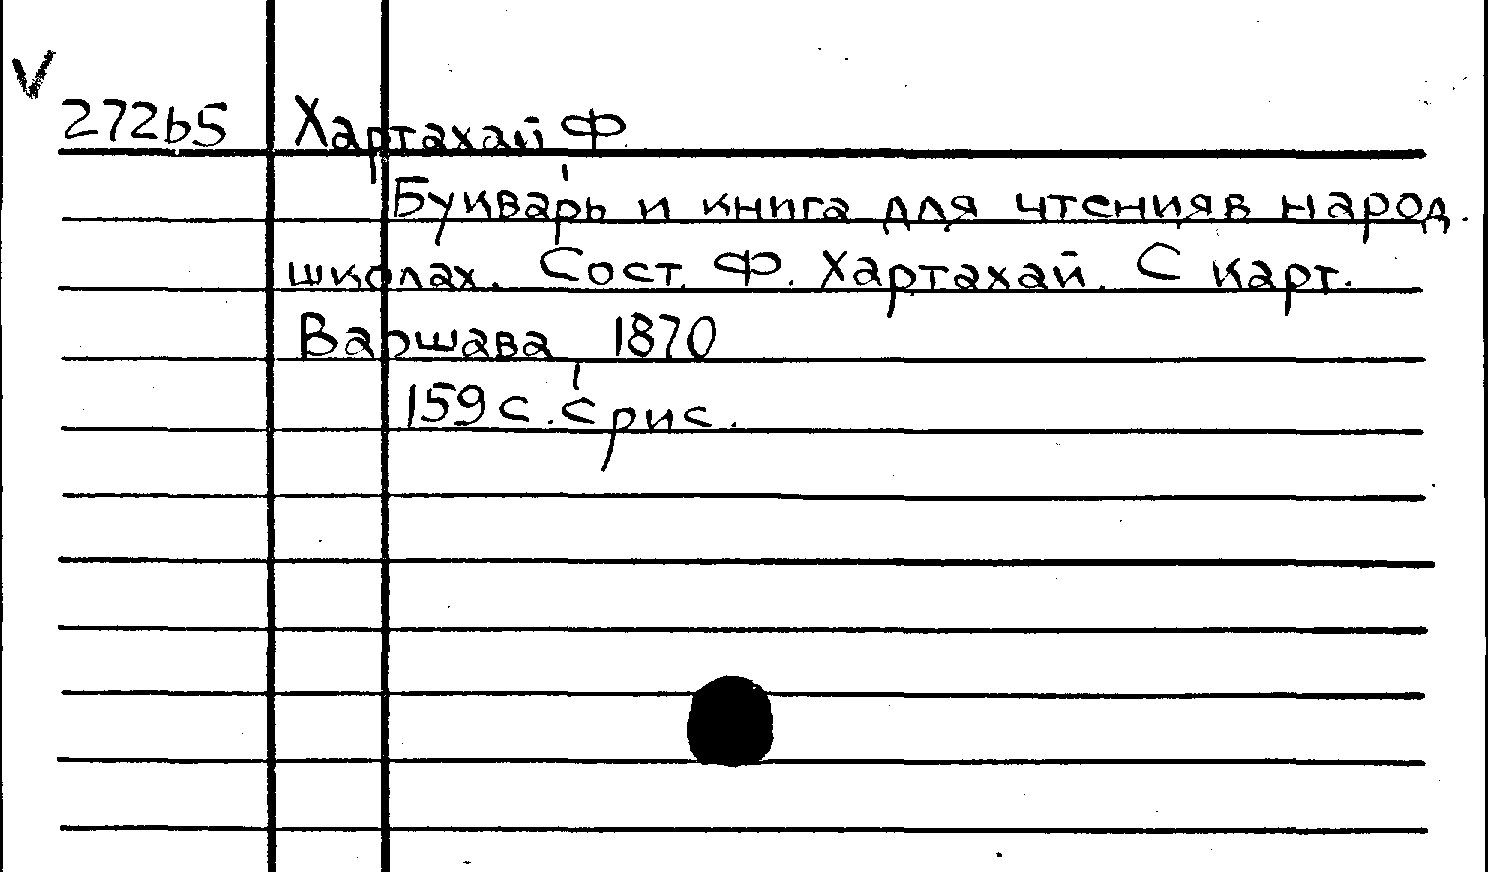 V
27265 Хартахай Ф
Букварь и книга для чтения в народ.
школах. Сост. Ф. Хартахай. С карт.
Варшава 1870
159 с. с рис.